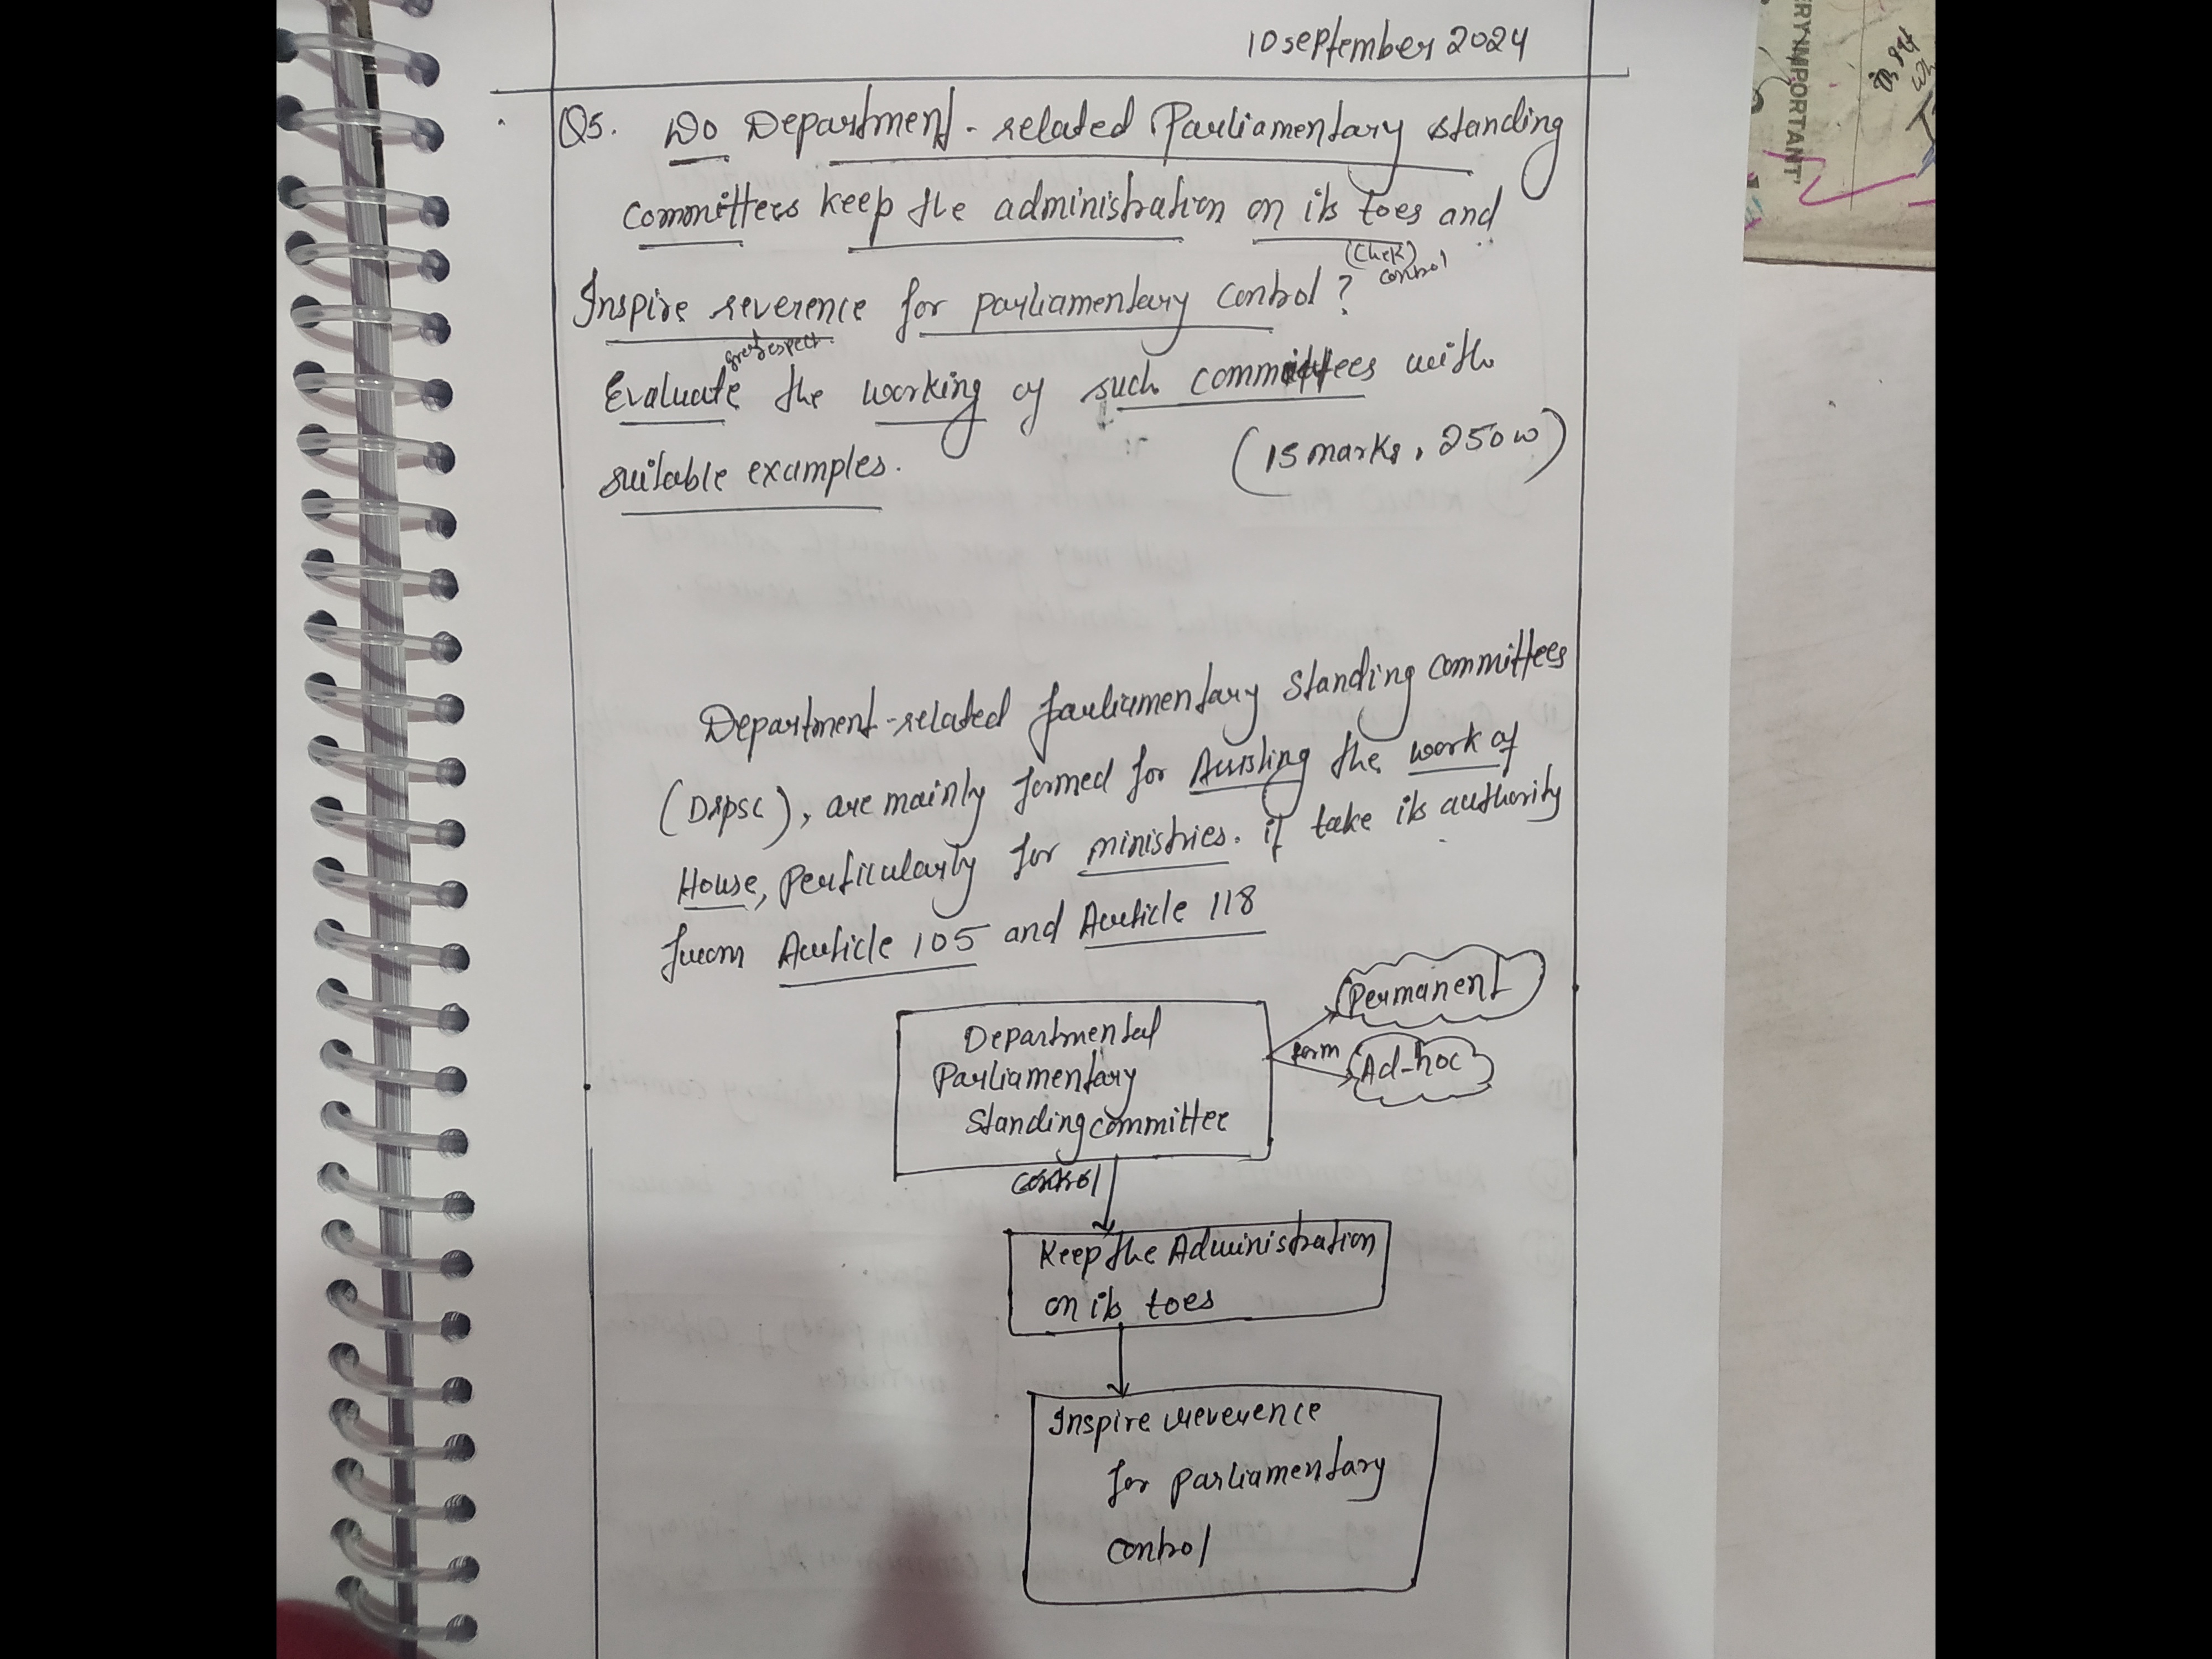 10 september 2024
Q5. Do Department-related Parliamentary standing
committees keep the administration on its toes and
(Chek)
control
Inspire reverence for parliamentary control?
great respect
Evaluate the working of such committees with
suitable examples.
(15 marks, 250w)
Department-related parliamentary standing committees
(DRPSC), are mainly formed for Assisting the work of
House, perticularly for ministries. it take its authority
from Article 105 and Article 118
Departmental
Parliamentary
Standing committee
form
Permanent
Ad-hoc
control
Keep the Administration
on its toes
Inspire reverence
for parliamentary
control
ERY IMPORTANT'